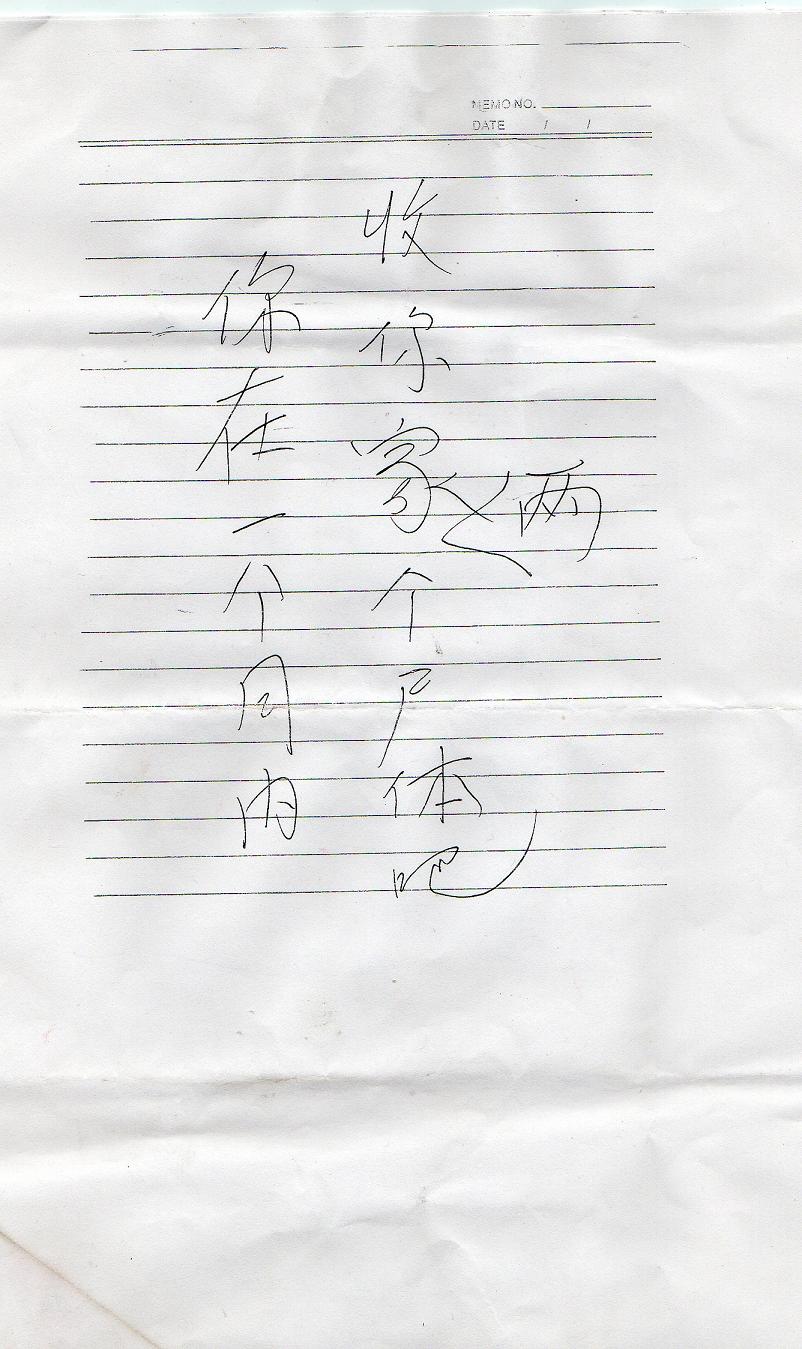 MEMO NO.
DATE / /
你在一个月内
收你家两个尸体吧